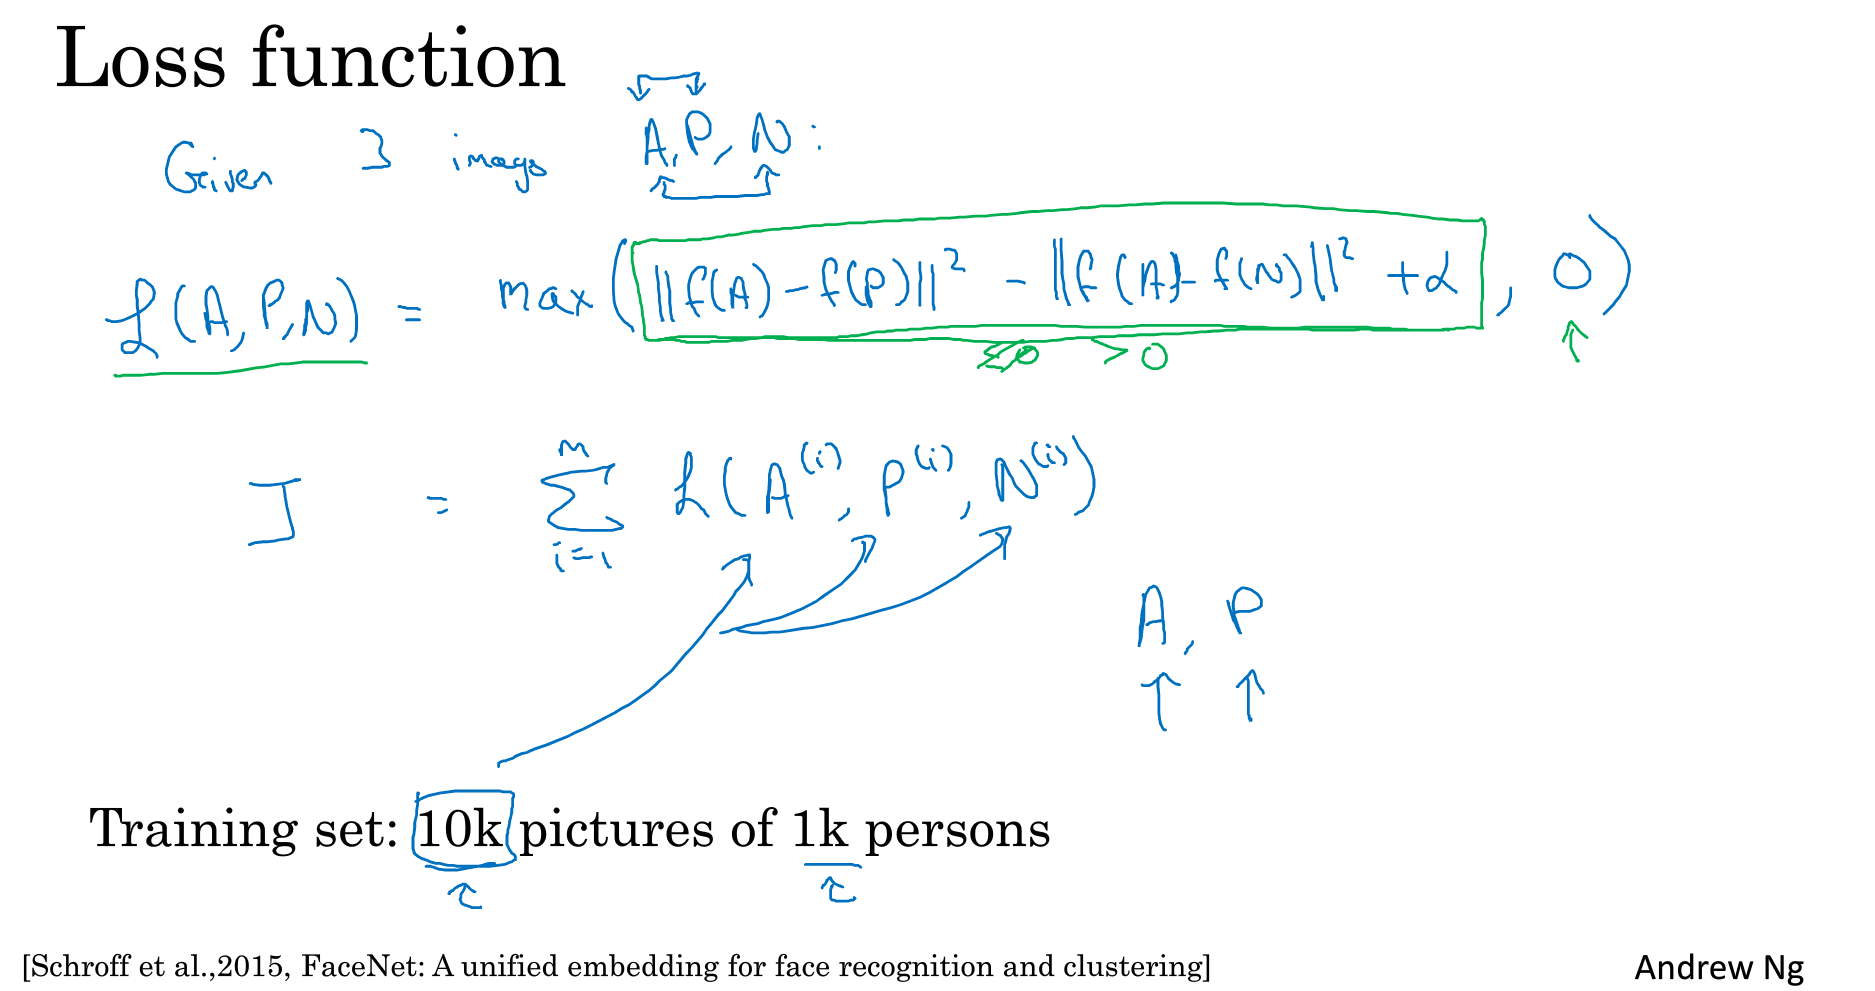 Loss function
Given 3 imags A, P, N :
ℒ(A, P, N) = max(||f(A) - f(P)||² - ||f(A) - f(N)||² + α, 0)
≤0 > 0
J = Σ_{i=1}^{m} ℒ(A^{(i)}, P^{(i)}, N^{(i)})
A, P
Training set: 10k pictures of 1k persons
[Schroff et al.,2015, FaceNet: A unified embedding for face recognition and clustering]
Andrew Ng